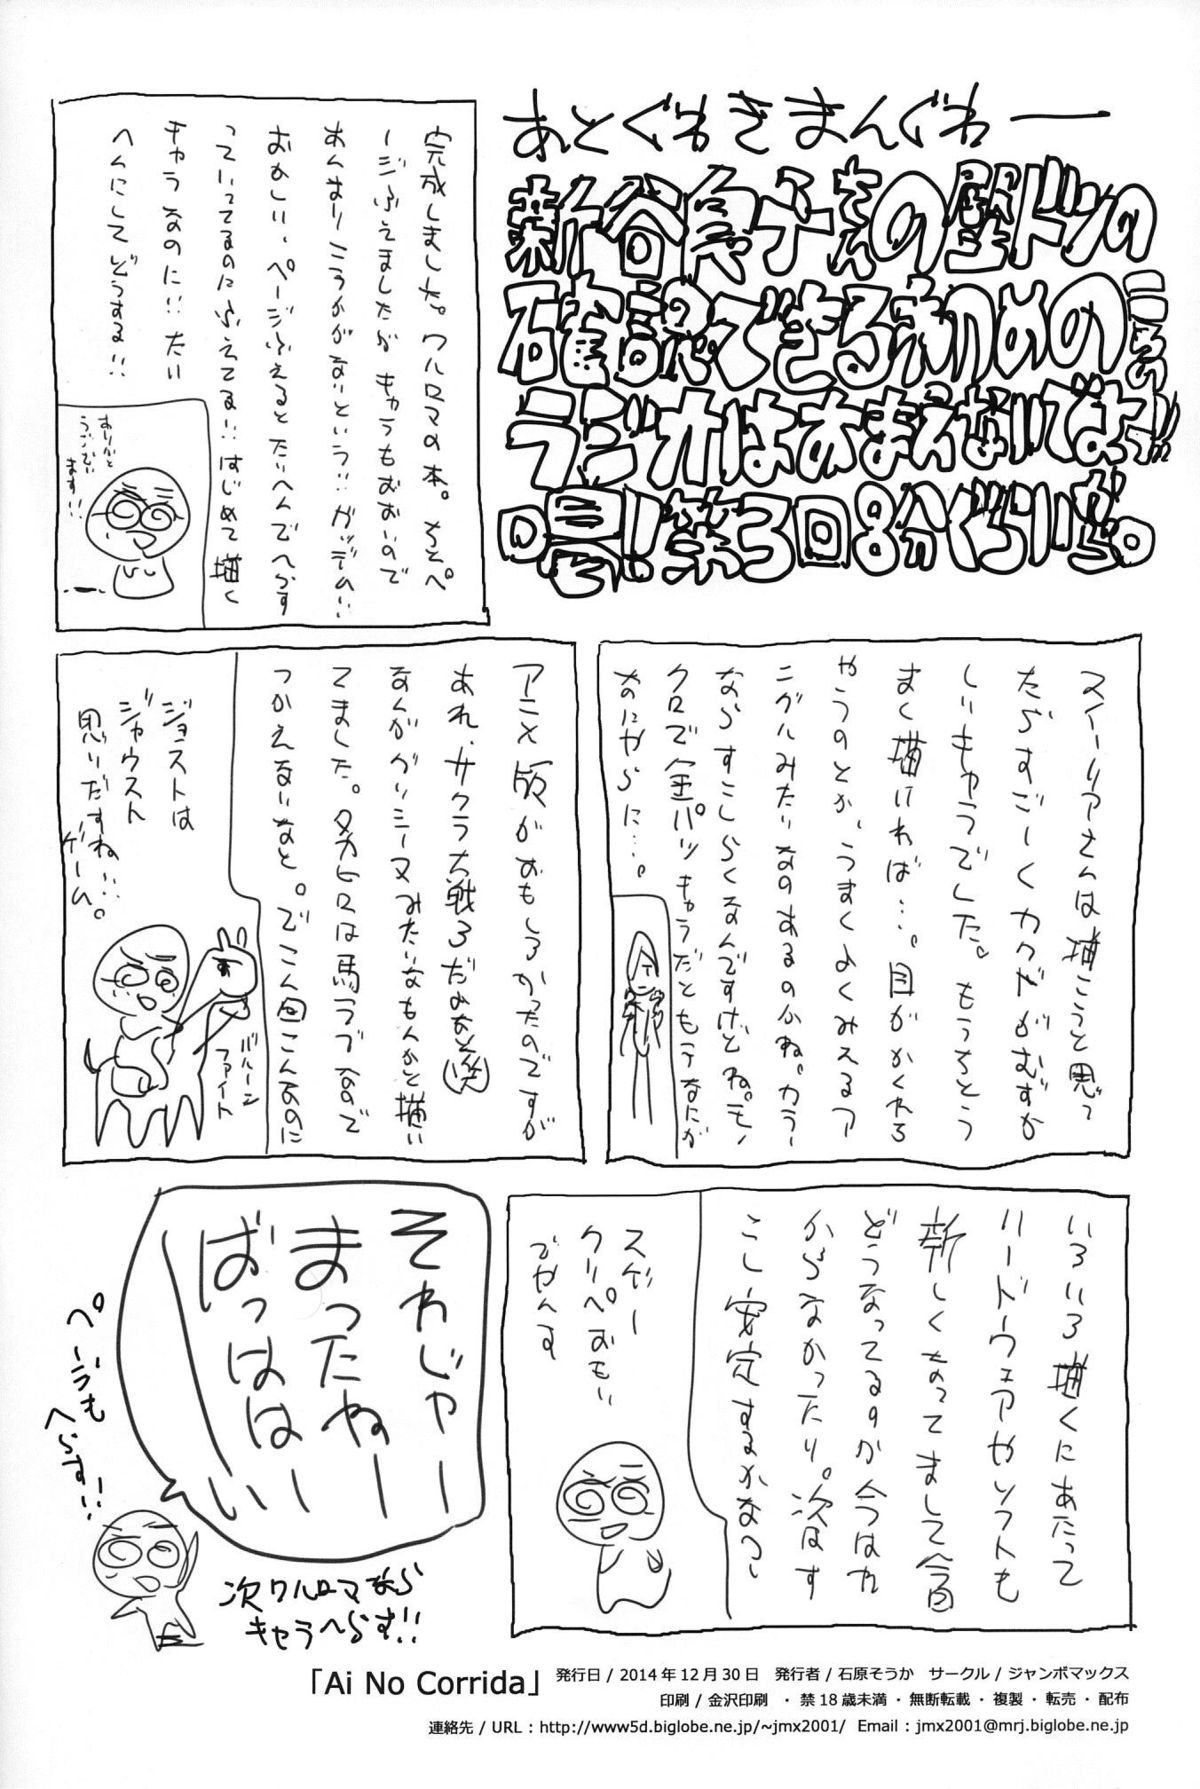 あとぐわきまんぐわー
新谷良子さんの壁ドンの
確認できる初めの
ラジオはおまえないでよっ!!
第3回8分ぐらい
完成しました。ワルロマの本。ちとペ
ージふえましたが キャラもおおいので
あんまりこうかがないという!! ガッデム!!
おかしい、ページふえるとたいへんでへらす
っていってるのにふえてる!! はじめて描く
キャラなのに!! たい
へんにしてどうする!!
ありがと
うござい
ます!!
スイーリアさんは描こうと思っ
たらすごーくカクがむずか
しいキャラでした。もうちとう
まく描ければ…。目がかくれる
やうのとか、うまくよくみえるア
ングルみたいなのあるのかね。カラー
ならすこしらくなんですけどね。モノ
クロで金パツキャラだともうなにが
なにやらに…。
アニメ版がおもしろかったのですが
あれ、サクラ大戦3だよなと(笑)
なんかグリシーヌみたいなもんかと描い
てました。タカヒロは馬ラブなので
つかえないなと。でこん回こんなのに
ジョストは
ジャウスト
思いだすね…
ゲーム。
バルーン
ファイト
いろいろ描くにあたって
ハードウェアやソフトも
新しくなってまして今回
どうなってるのか今はわ
からなかったり。次はす
こし安定するかなっ
スゲー
クリペおもい
でやんす
それじゃー
まったねー
ばっはは
ーい
ページも
へらす!!
次ワルロマなら
キャラへらす!!
「Ai No Corrida」 発行日 / 2014年12月30日 発行者 / 石原そうか サークル / ジャンボマックス
印刷 / 金沢印刷 ・ 禁18歳未満 ・ 無断転載 ・ 複製 ・ 転売 ・ 配布
連絡先 / URL : http://www5d.biglobe.ne.jp/~jmx2001/ Email : jmx2001@mrj.biglobe.ne.jp